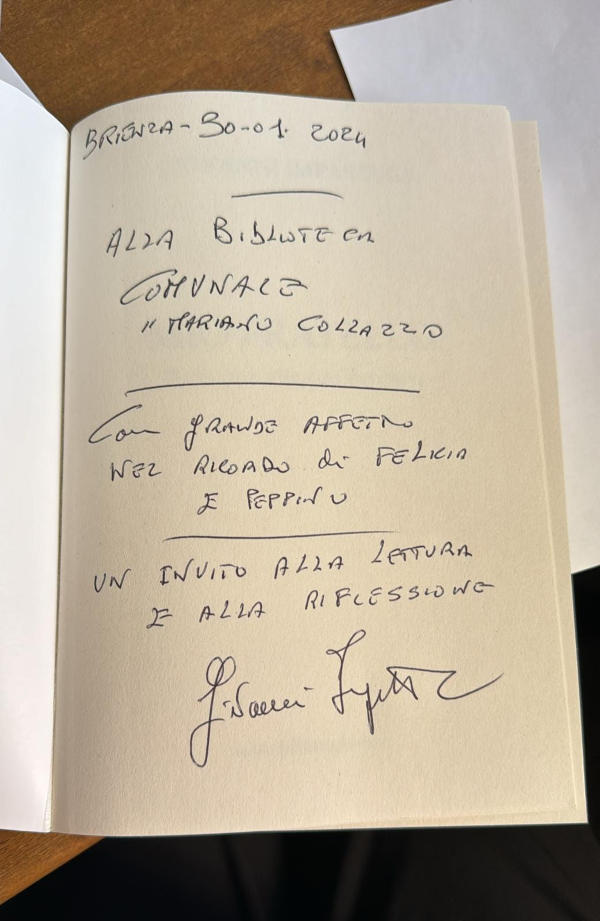 BRIENZA - 30-01. 2024
ALLA BIBLIOTECA
COMUNALE
" MARIANO COLLAZZO
Con GRANDE AFFETTO
NEL RICORDO di FELICIA
E PEPPINO
UN INVITO ALLA LETTURA
E ALLA RIFLESSIONE
Giovanni